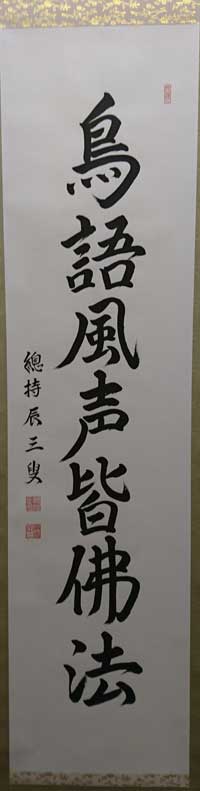 鳥語風声皆佛法
總持辰三叟